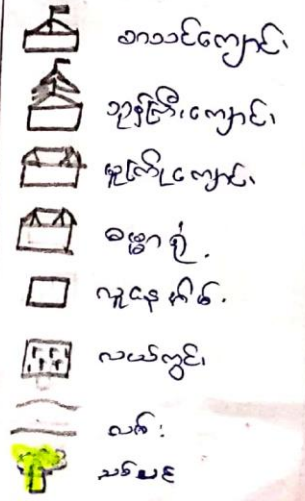 စာသင်ကျောင်း
ဘုန်းကြီးကျောင်း
မူကြိုကျောင်း
ဓမ္မာရုံ
လူနေအိမ်
လယ်ကွင်း
လမ်း
သစ်ပင်